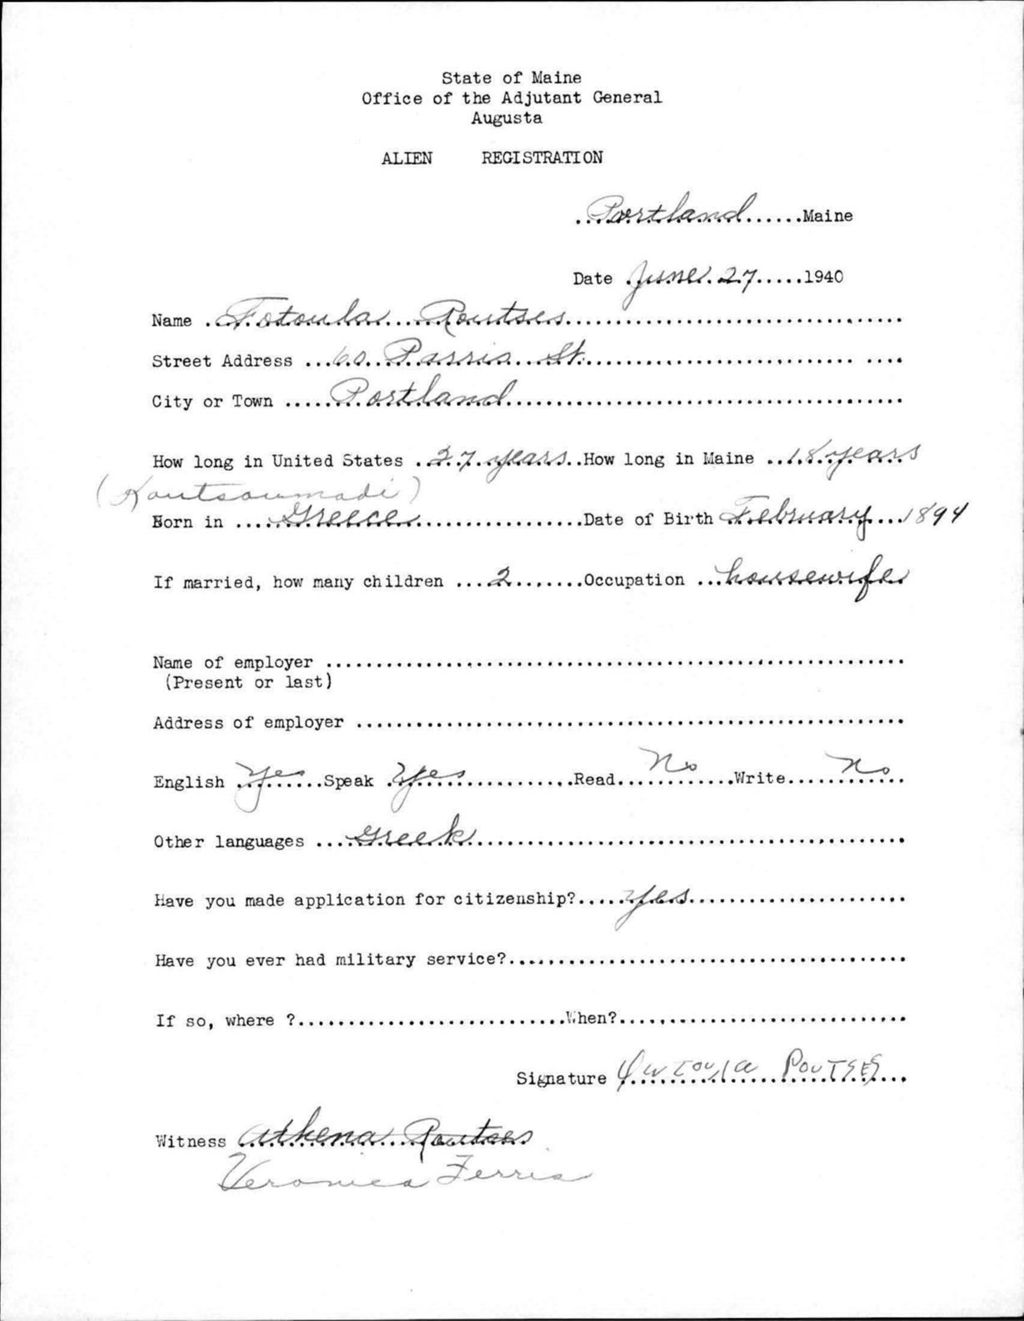 State of Maine
Office of the Adjutant General
Augusta
ALIEN REGISTRATION
Portland Maine
Date June 27 1940
Name Fotoula Routses
Street Address 60 Parris St.
City or Town Portland
How long in United States 27 years How long in Maine 18 years
(Koutsoumadi)
Born in Greece Date of Birth February 1894
If married, how many children 2 Occupation housewife
Name of employer
(Present or last)
Address of employer
English Yes Speak Yes Read No Write No
Other languages Greek
Have you made application for citizenship? yes
Have you ever had military service?
If so, where ? When?
Signature Φωτουλα Ρουτσες
Witness Athena Routses
Veronica Ferris